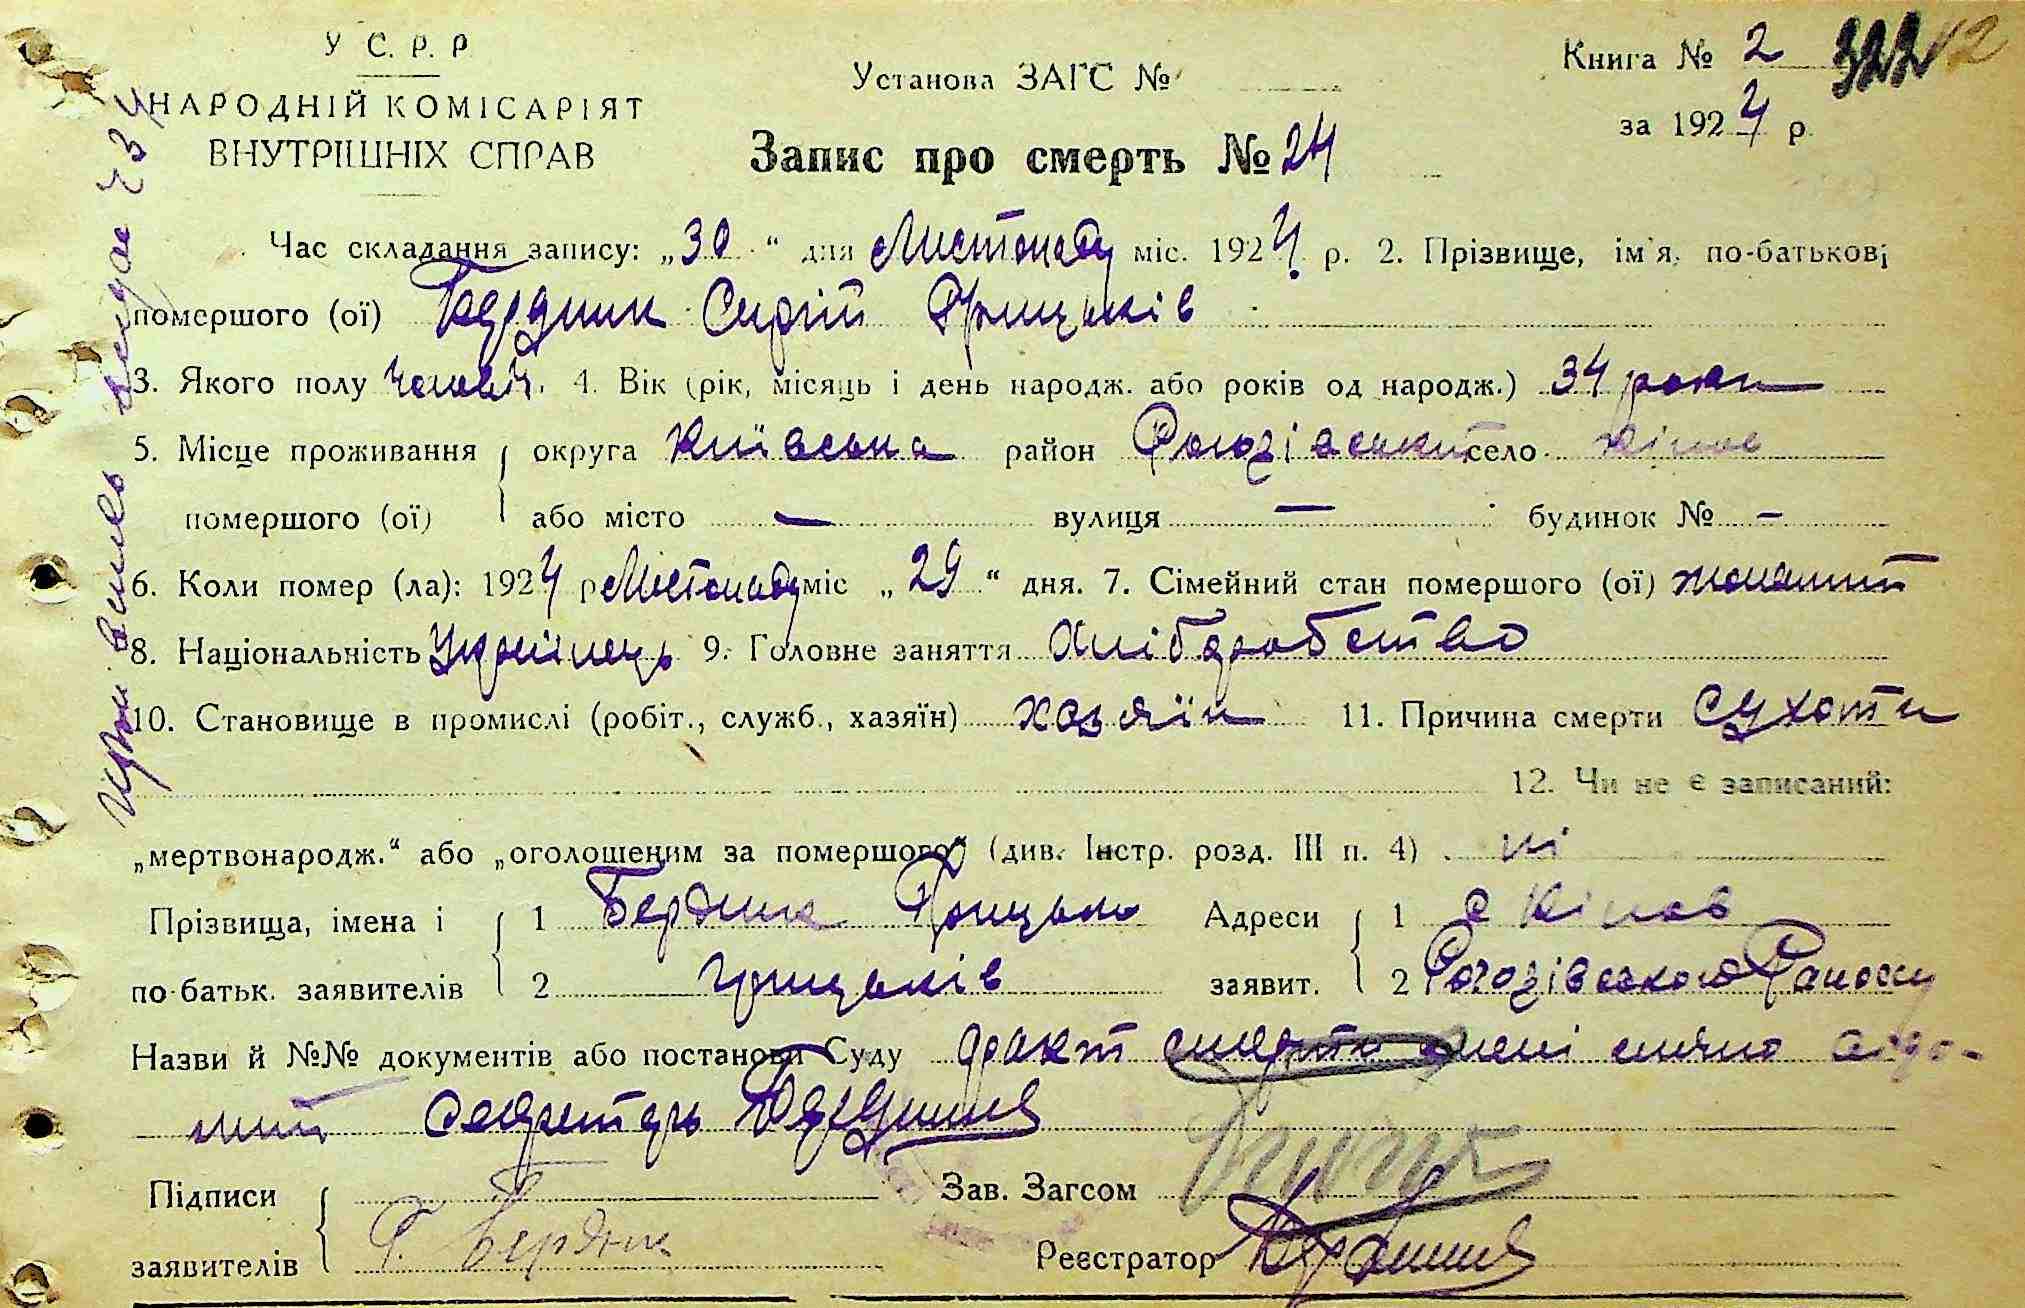 У С. Р. Р
НАРОДНІЙ КОМІСАРІЯТ
ВНУТРІШНІХ СПРАВ
Установа ЗАГС №
Книга № 2 322
за 1924 р.
Запис про смерть № 24
Час складання запису: „30“ дня Листопаду міс. 1924 р. 2. Прізвище, ім'я, по-батькові
помершого (ої) Бердник Сергій Грицьків
3. Якого полу чолов. 4. Вік (рік, місяць і день народж. або років од народж.) 34 роки
5. Місце проживання округа Київська район Рогозівський село
помершого (ої) або місто — вулиця — будинок № —
6. Коли помер (ла): 1924 р Листопаду міс „29“ дня. 7. Сімейний стан помершого (ої) жонатий
8. Національність Українець 9. Головне заняття Хліборобство
10. Становище в промислі (робіт., служб., хазяїн) хазяїн 11. Причина смерти Сухоти
12. Чи не є записаний:
„мертвонародж.“ або „оголошеним за помершого“ (див. Інстр. розд. III п. 4) ні
Прізвища, імена і 1 Бердник Грицько Адреси 1 с
по-батьк. заявителів 2 Грицьків заявит. 2 Рогозівського Району
Назви й №№ документів або постанови Суду факт смерти мені
Секретарь
Підписи Зав. Загсом
заявителів Г. Бердник Реєстратор